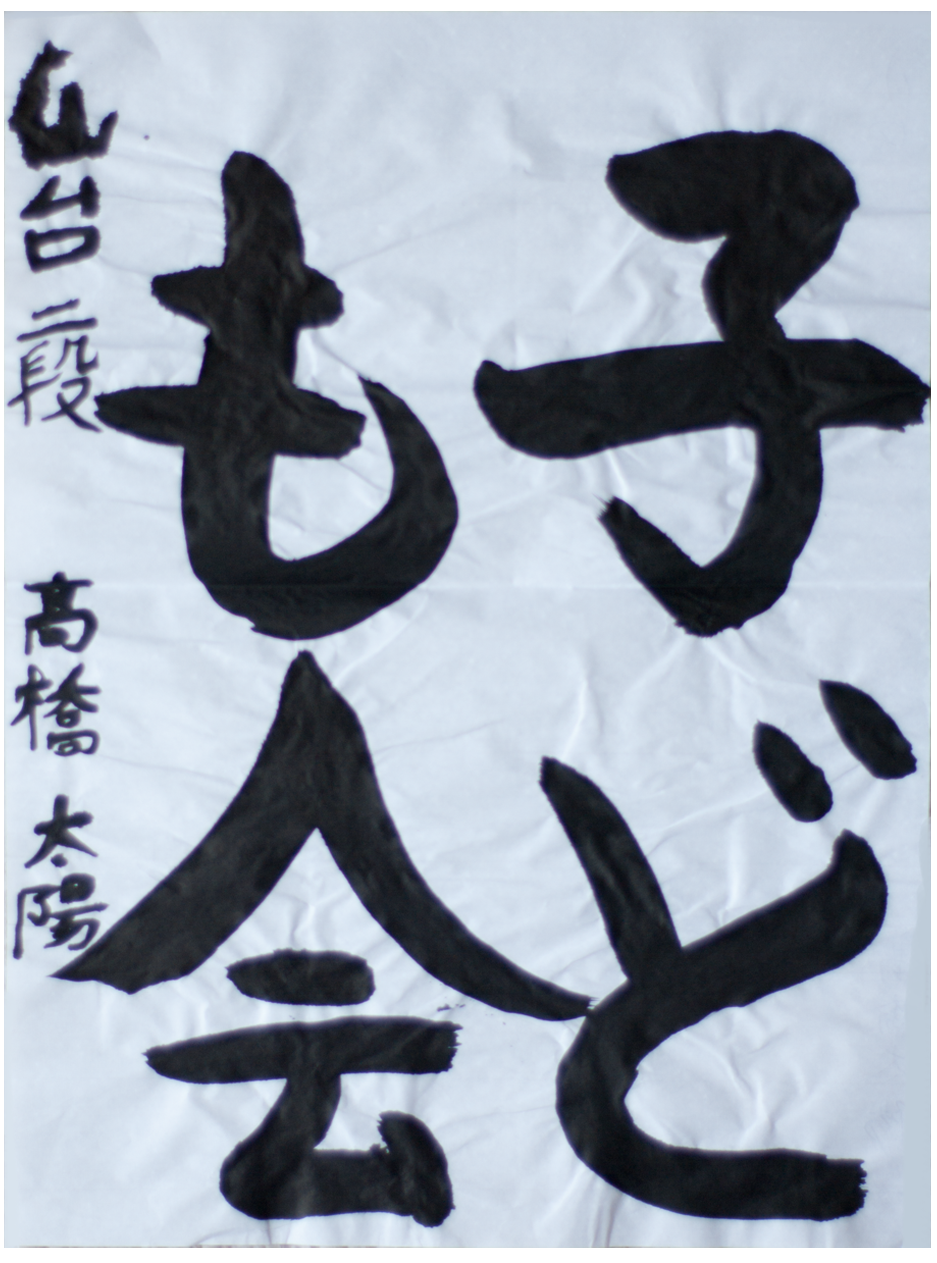 子ど
も会
仙台 二段 高橋 太陽